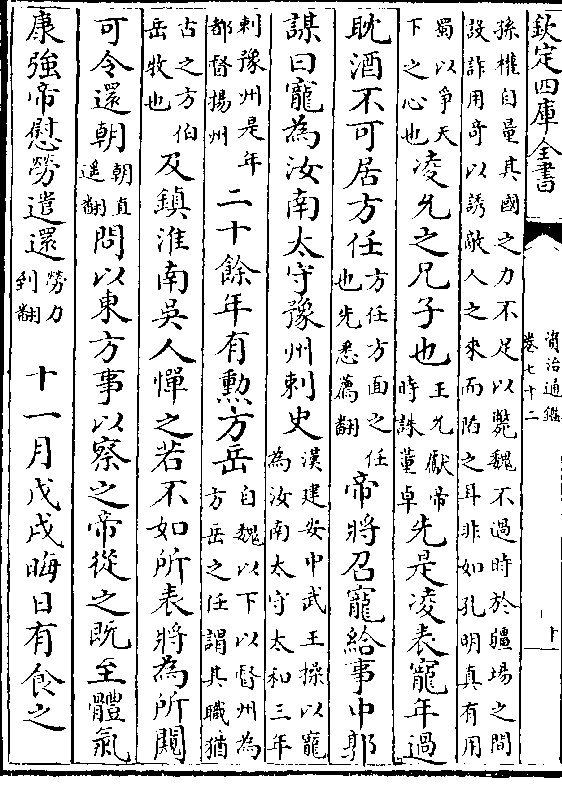 欽定四庫全書
資治通鑑
卷七十二
孫權自量其國之力不足以斃魏不過時於疆場之間
設詐用奇以誘敵人之來而陷之耳非如孔明真有用
蜀以爭天
下之心也
凌允之兄子也
王允獻帝
時誅董卓
先是凌表寵年過
耽酒不可居方任
方任方面之任
也先悉薦翻
帝將召寵給事中郭
謀曰寵為汝南太守豫州刺史
漢建安中武王操以寵
為汝南太守太和三年
刺豫州是年
都督揚州
二十餘年有勲方岳
自魏以下以督州為
方岳之任謂其職猶
古之方伯
岳牧也
及鎮淮南吳人憚之若不如所表將為所闚
可令還朝
朝直
遥翻
問以東方事以察之帝從之既至體氣
康強帝慰勞遣還
勞力
到翻
十一月戊戌晦日有食之